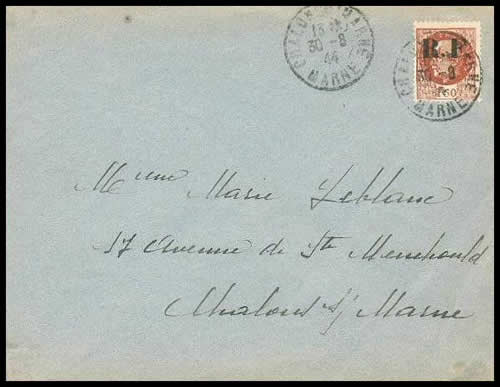 CHALONS S MARNE
15
30-8
44
MARNE
R.F
30-8
1F50
MARNE
Mme Marie Leblanc
17 Avenue de Ste Menehould
Chalons s/ Marne